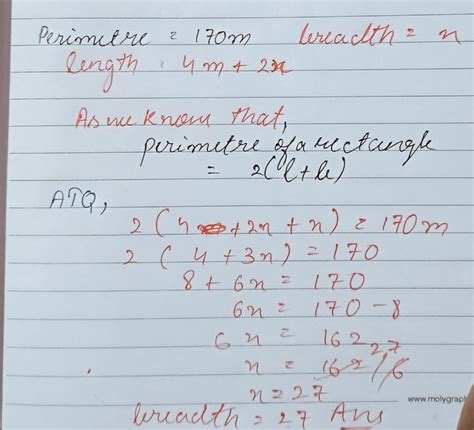 Perimetre = 170m breadth = x
length = 4m + 2x
As we know that,
perimetre of a rectangle
= 2(l+b)
ATQ,
2 (4 + 2x + x) = 170m
2 ( 4 + 3x ) = 170
8 + 6x = 170
6x = 170 - 8
6x = 162
x = 162/6 27
x = 27
breadth = 27 Ans
www.molygraph